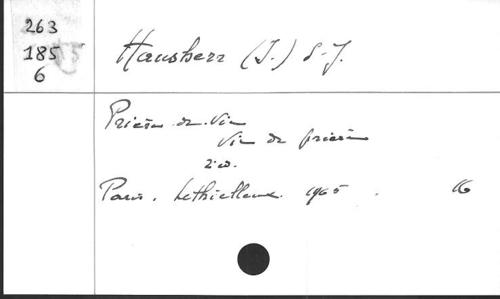 263
185
6
Hausherr (I.) S.J.
Prière de vie
Vie de prière
2 éd.
Paris. Lethielleux. 1965. 16